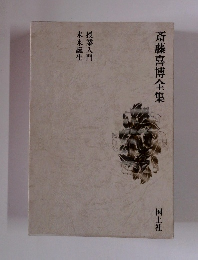 斎藤喜博全集
授業入門
未来誕生
国土社